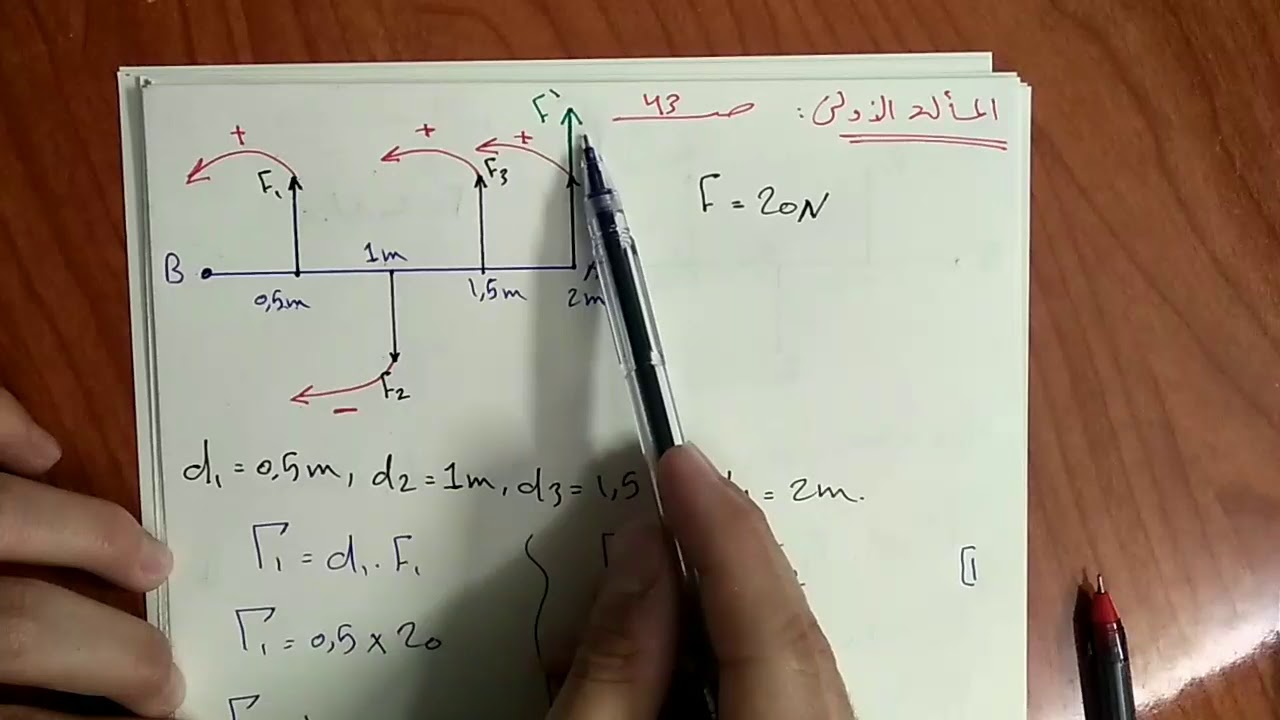 المسألة الاولى: صـ 43
F = 20N
F`
+ + +
F₁ F₃
B 1m A
0,5m 1,5m 2m
F₂
−
d₁ = 0,5m, d₂ = 1m, d₃ = 1,5 = 2m.
Γ₁ = d₁ . F₁
1
Γ₁ = 0,5 x 20